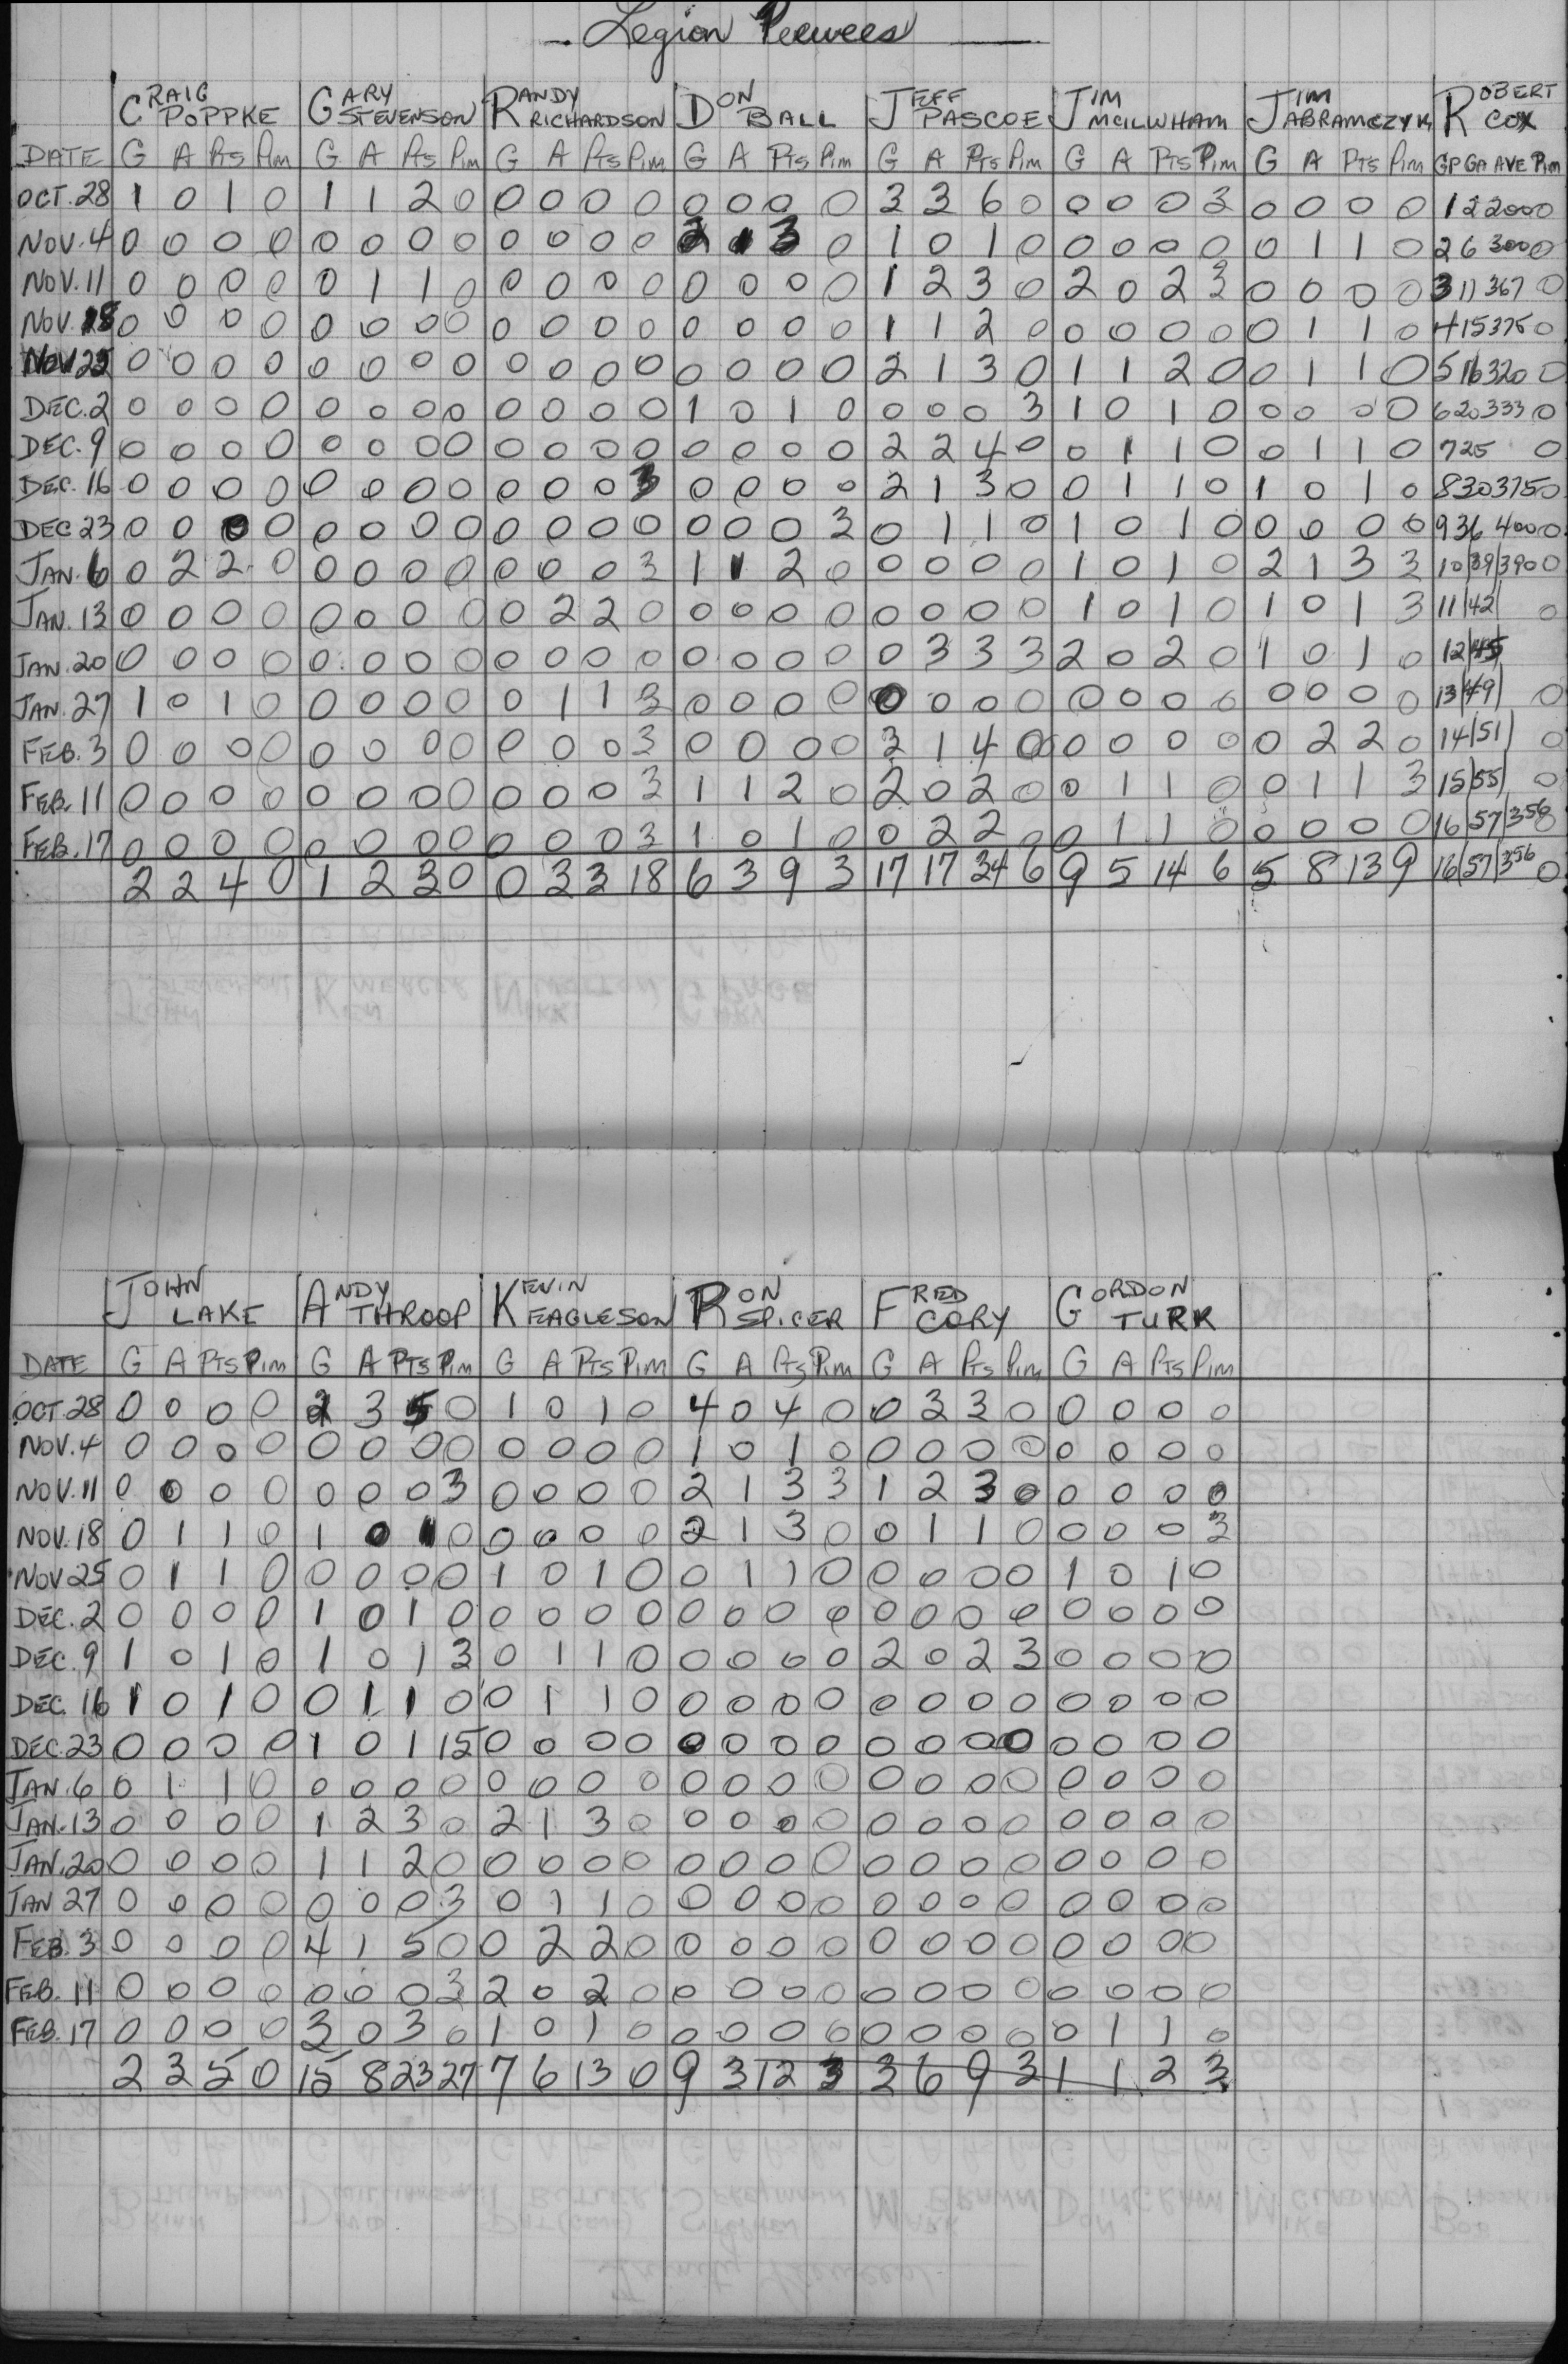 Legion Peewees
CRAIG POPPKE GARY STEVENSON RANDY RICHARDSON DON BALL JEFF PASCOE JIM MCILWHAM JIM ABRAMCZYK ROBERT COX
DATE G A Pts Pim G A Pts Pim G A Pts Pim G A Pts Pim G A Pts Pim G A Pts Pim G A Pts Pim GP GA AVE Pim
OCT. 28 1 0 1 0 1 1 2 0 0 0 0 0 0 0 0 0 3 3 6 0 0 0 0 3 0 0 0 0 1 2 2000 0
NOV. 4 0 0 0 0 0 0 0 0 0 0 0 0 2 1 3 0 1 0 1 0 0 0 0 0 0 1 1 0 2 6 3000 0
NOV. 11 0 0 0 0 0 1 1 0 0 0 0 0 0 0 0 0 1 2 3 0 2 0 2 3 0 0 0 0 3 11 367 0
NOV. 18 0 0 0 0 0 0 0 0 0 0 0 0 0 0 0 0 1 1 2 0 0 0 0 0 0 1 1 0 4 15 375 0
NOV 25 0 0 0 0 0 0 0 0 0 0 0 0 0 0 0 0 2 1 3 0 1 1 2 0 0 1 1 0 5 16 320 0
DEC. 2 0 0 0 0 0 0 0 0 0 0 0 0 1 0 1 0 0 0 0 3 1 0 1 0 0 0 0 0 6 20 333 0
DEC. 9 0 0 0 0 0 0 0 0 0 0 0 0 0 0 0 0 2 2 4 0 0 1 1 0 0 1 1 0 7 25 0
DEC. 16 0 0 0 0 0 0 0 0 0 0 0 3 0 0 0 0 2 1 3 0 0 1 1 0 1 0 1 0 8 30 375 0
DEC 23 0 0 0 0 0 0 0 0 0 0 0 0 0 0 0 3 0 1 1 0 1 0 1 0 0 0 0 0 9 36 400 0
JAN. 6 0 2 2 0 0 0 0 0 0 0 0 3 1 1 2 0 0 0 0 0 1 0 1 0 2 1 3 3 10 39 390 0
JAN. 13 0 0 0 0 0 0 0 0 0 2 2 0 0 0 0 0 0 0 0 0 1 0 1 0 1 0 1 3 11 42 0
JAN. 20 0 0 0 0 0 0 0 0 0 0 0 0 0 0 0 0 0 3 3 3 2 0 2 0 1 0 1 0 12 45
JAN. 27 1 0 1 0 0 0 0 0 0 1 1 3 0 0 0 0 0 0 0 0 0 0 0 0 0 0 0 0 13 49 0
FEB. 3 0 0 0 0 0 0 0 0 0 0 0 3 0 0 0 0 3 1 4 0 0 0 0 0 0 2 2 0 14 51 0
FEB. 11 0 0 0 0 0 0 0 0 0 0 0 3 1 1 2 0 2 0 2 0 0 1 1 0 0 1 1 3 15 55 0
FEB. 17 0 0 0 0 0 0 0 0 0 0 0 3 1 0 1 0 0 2 2 0 0 1 1 0 0 0 0 0 16 57 356 0
2 2 4 0 1 2 3 0 0 3 3 18 6 3 9 3 17 17 34 6 9 5 14 6 5 8 13 9 16 57 356 0
JOHN LAKE ANDY THROOP KEVIN EAGLESON RON SPICER FRED CORY GORDON TURK
DATE G A PTS Pim G A PTS Pim G A PTS PIM G A Pts Pim G A Pts Pim G A Pts Pim
OCT 28 0 0 0 0 2 3 5 0 1 0 1 0 4 0 4 0 0 3 3 0 0 0 0 0
NOV. 4 0 0 0 0 0 0 0 0 0 0 0 0 1 0 1 0 0 0 0 0 0 0 0 0
NOV. 11 0 0 0 0 0 0 0 3 0 0 0 0 2 1 3 3 1 2 3 0 0 0 0 0
NOV. 18 0 1 1 0 1 0 1 0 0 0 0 0 2 1 3 0 0 1 1 0 0 0 0 3
NOV 25 0 1 1 0 0 0 0 0 1 0 1 0 0 1 1 0 0 0 0 0 1 0 1 0
DEC. 2 0 0 0 0 1 0 1 0 0 0 0 0 0 0 0 0 0 0 0 0 0 0 0 0
DEC. 9 1 0 1 0 1 0 1 3 0 1 1 0 0 0 0 0 2 0 2 3 0 0 0 0
DEC. 16 1 0 1 0 0 1 1 0 0 1 1 0 0 0 0 0 0 0 0 0 0 0 0 0
DEC. 23 0 0 0 0 1 0 1 15 0 0 0 0 0 0 0 0 0 0 0 0 0 0 0 0
JAN. 6 0 1 1 0 0 0 0 0 0 0 0 0 0 0 0 0 0 0 0 0 0 0 0 0
JAN. 13 0 0 0 0 1 2 3 0 2 1 3 0 0 0 0 0 0 0 0 0 0 0 0 0
JAN. 20 0 0 0 0 1 1 2 0 0 0 0 0 0 0 0 0 0 0 0 0 0 0 0 0
JAN 27 0 0 0 0 0 0 0 3 0 1 1 0 0 0 0 0 0 0 0 0 0 0 0 0
FEB. 3 0 0 0 0 4 1 5 0 0 2 2 0 0 0 0 0 0 0 0 0 0 0 0 0
FEB. 11 0 0 0 0 0 0 0 3 2 0 2 0 0 0 0 0 0 0 0 0 0 0 0 0
FEB. 17 0 0 0 0 3 0 3 0 1 0 1 0 0 0 0 0 0 0 0 0 0 1 1 0
2 3 5 0 15 8 23 27 7 6 13 0 9 3 12 3 3 6 9 3 1 1 2 3